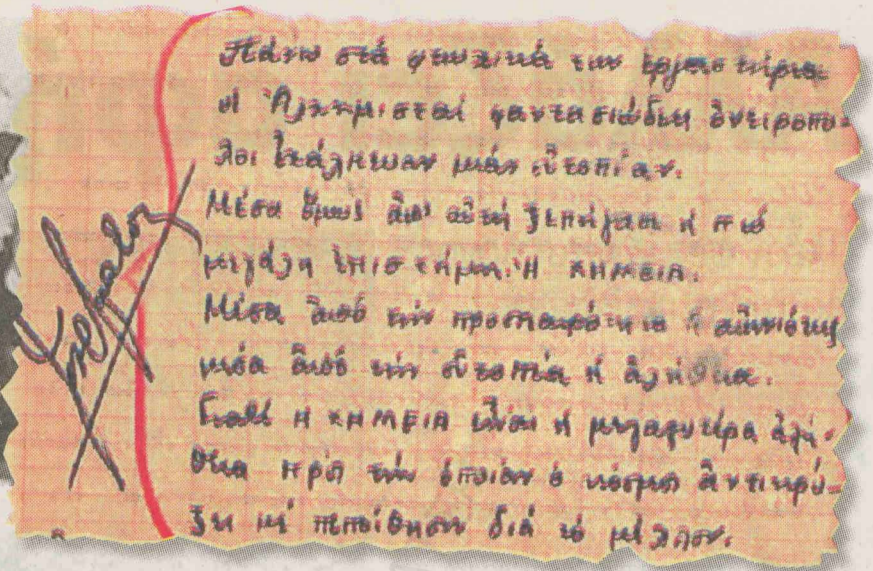 Πάνω στά φτωχικά των ἐργαστήρια
οἱ Ἀλχημισταί φαντασιώδεις ὀνειροπό-
λοι ἐκάλπωαν μιάν οὐτοπίαν.
Μέσα ὅμως ἀπ' αὐτή ξεπήγασε ἡ πιό
μεγάλη ἐπιστήμη. Ἡ ΧΗΜΕΙΑ.
Μέσα ἀπό τήν προσκαιρότητα ἡ αἰωνιότης
μέσα ἀπό τήν οὐτοπία ἡ ἀλήθεια.
Γιατί ἡ ΧΗΜΕΙΑ εἶναι ἡ μεγαλυτέρα ἀλή-
θεια πρός τήν ὁποίαν ὁ κόσμος ἀντικρύ-
ζει μέ πεποίθησιν διά τό μέλλον.